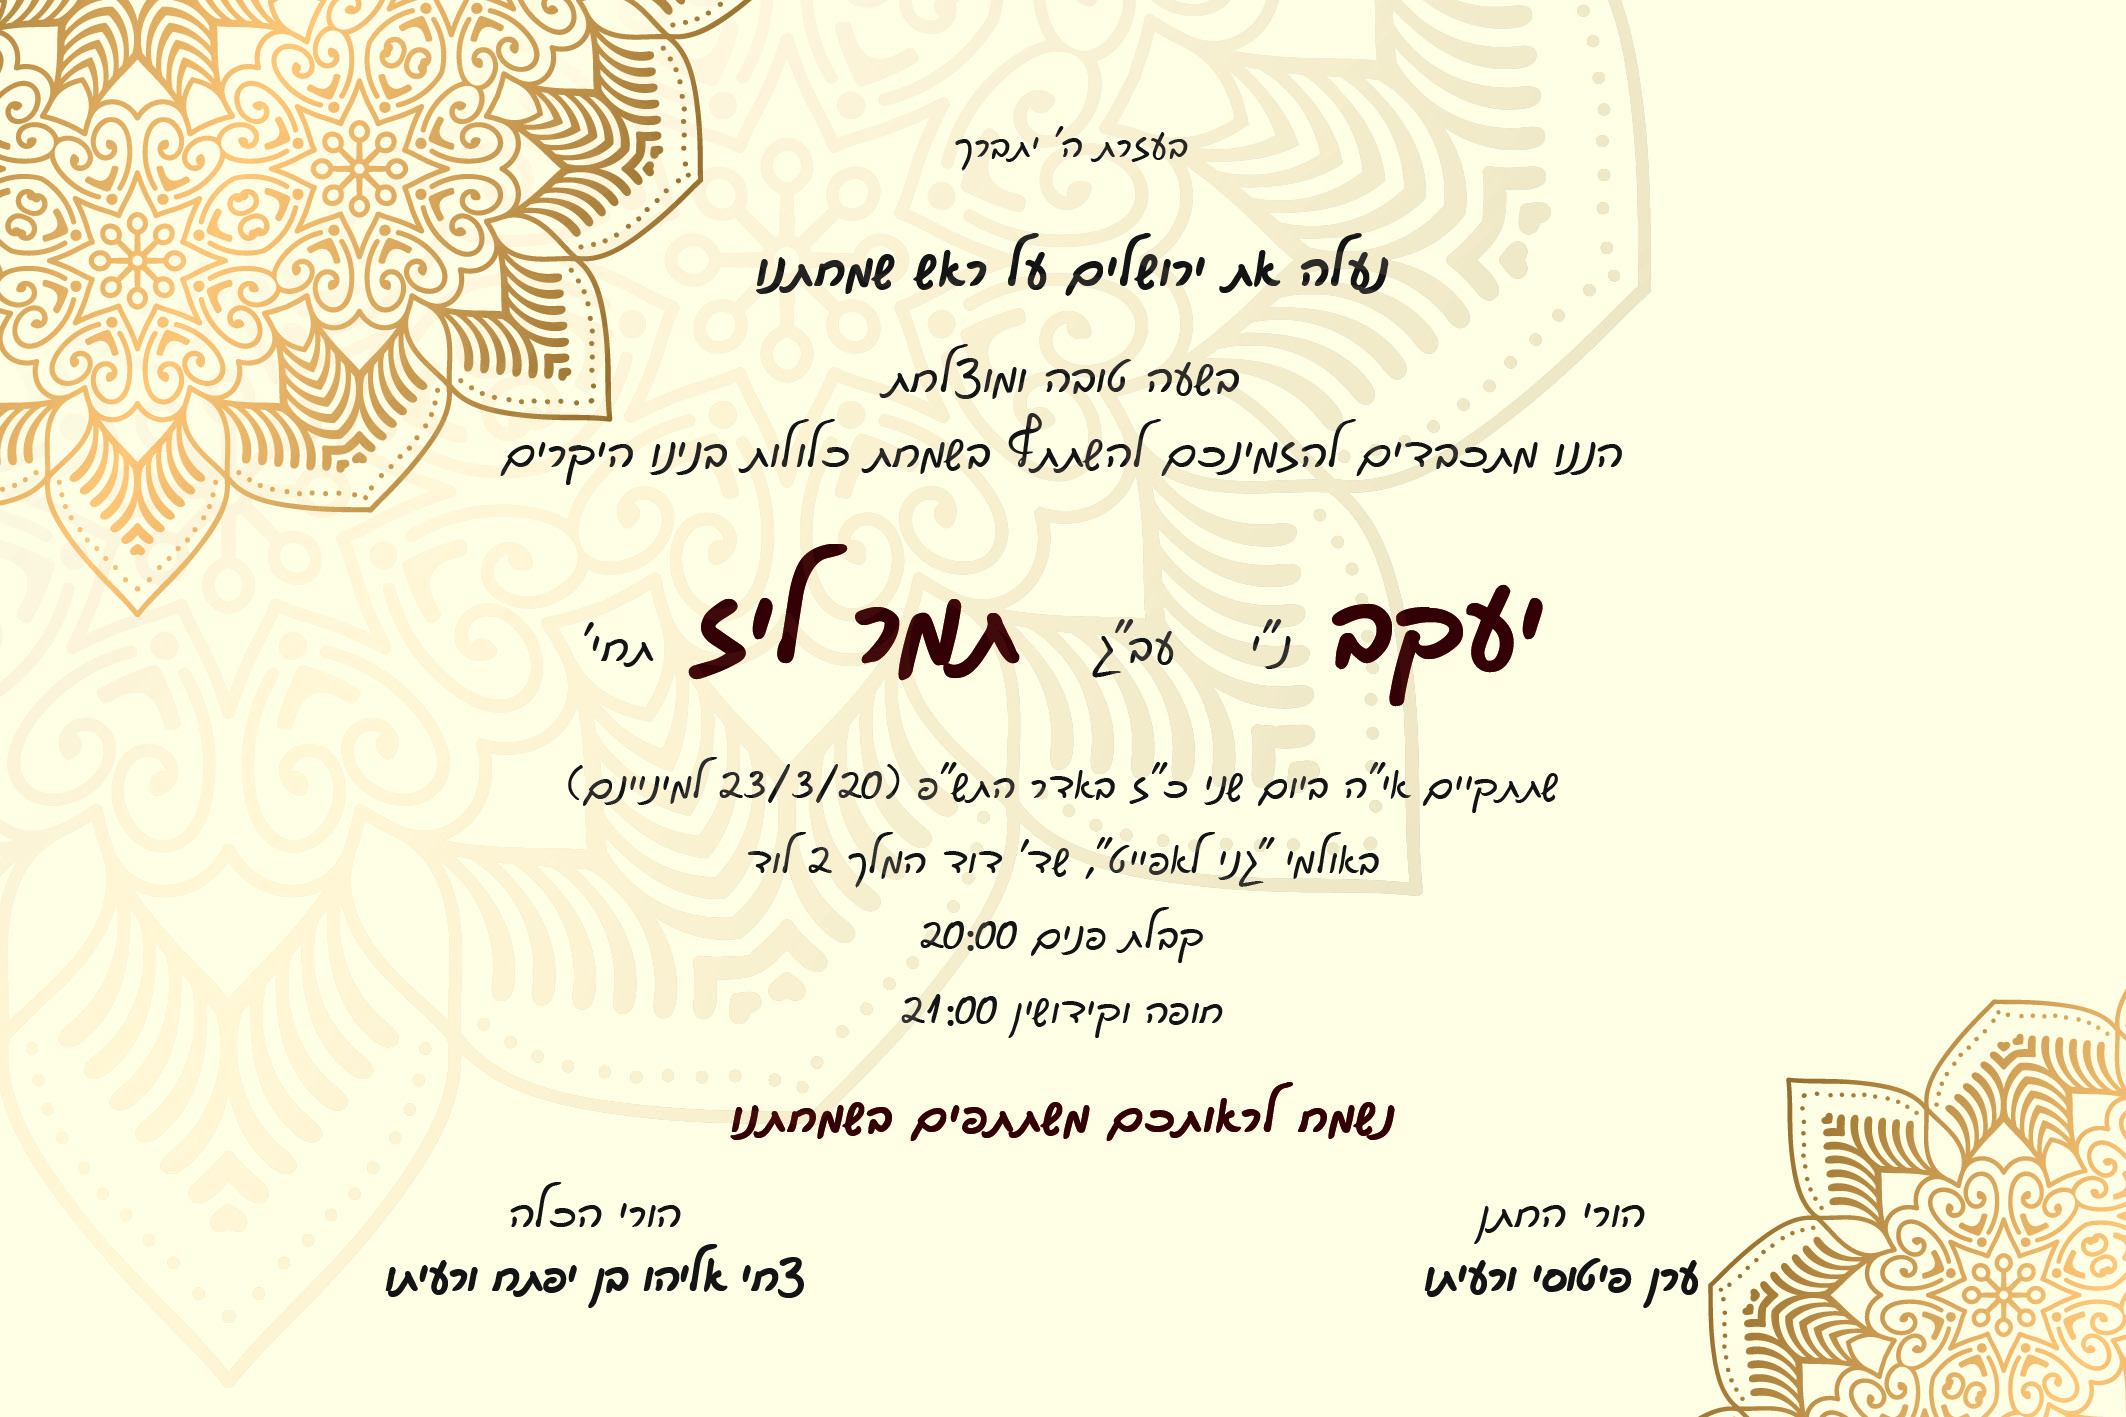 בעזרת ה' יתברך
נעלה את ירושלים על ראש שמחתנו
בשעה טובה ומוצלחת
הננו מתכבדים להזמינכם להשתתף בשמחת כלולות בנינו היקרים
יעקב נ"י עב"ג תמר ליז תחי'
שתתקיים אי"ה ביום שני כ"ז באדר התש"פ (23/3/20 למיניינם)
באולמי "גני לאפייט", שד' דוד המלך 2 לוד
קבלת פנים 20:00
חופה וקידושין 21:00
נשמח לראותכם משתתפים בשמחתנו
הורי החתן
ערן פיטוסי ורעיתו
הורי הכלה
צחי אליהו בן יפתח ורעיתו